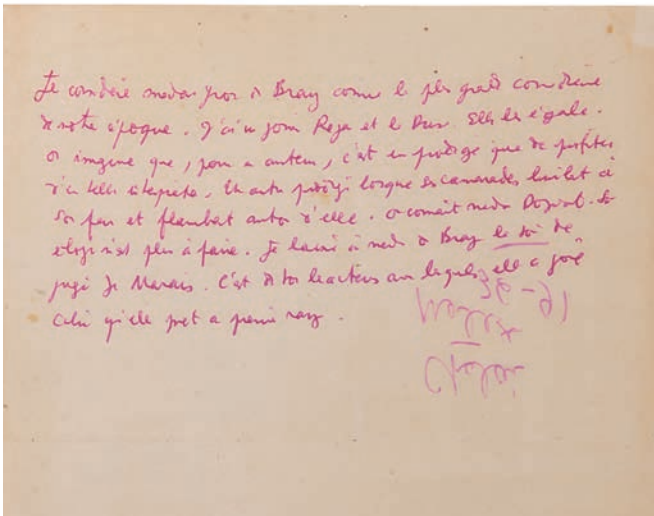 Je considère madame Yvon de Bray comme la plus grande comédienne
de notre époque. J'ai vu jouer Réja et la Duse. Elle les égale.
on imagine que, pour un auteur, c'est un prodige que de profiter
d'un telle interprète. Un autre prodige lorsque ses camarades brûlent à
son feu et flambent autour d'elle. on connait made Dorval. Son
éloge n'est plus à faire. Je laisse à made de Bray le soin de
juger Jean Marais. C'est de tous les acteurs avec lesquels elle a joué
celui qu'elle met au premier rang.